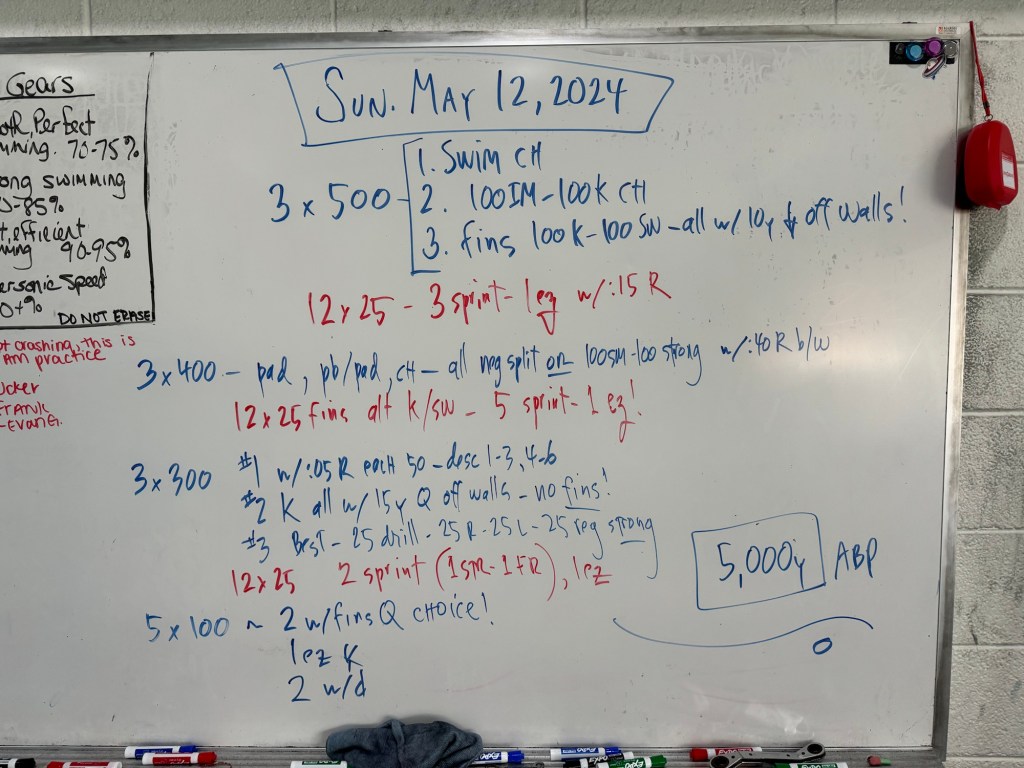 Gears
Perfect
70-75%
SWIMMING
85%
efficient
90-95%
Speed
DO NOT ERASE
crashing, this is
practice
SUN. MAY 12, 2024
3 x 500
1. SWIM CH
2. 100IM-100K CH
3. fins 100K-100SW-all w/10y off walls!
12x25 - 3 sprint-1ez w/:15 R
3x400 - pad, pb/pad, CH - all neg split on 100sm-100 strong w/:40 R b/w
12x25 fins alt K/SW - 5 sprint-1 ez!
3x300 #1 w/:05 R each 50 - desc 1-3, 4-6
#2 K all w/15y Q off walls - no fins!
#3 Best - 25 drill - 25 R - 25 L - 25 reg strong
12x25 2 sprint (1STR-1FR), 1ez
5,000y ABP
5x100 ~ 2 w/fins Q CHOICE!
1ez K
2 w/d